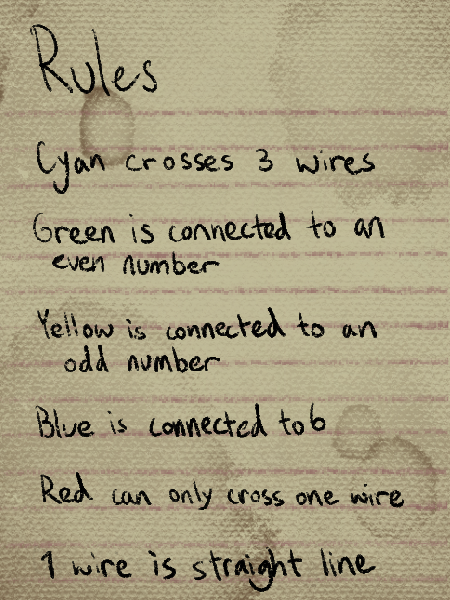 Rules
Cyan crosses 3 wires
Green is connected to an
even number
Yellow is connected to an
odd number
Blue is connected to 6
Red can only cross one wire
1 wire is straight line